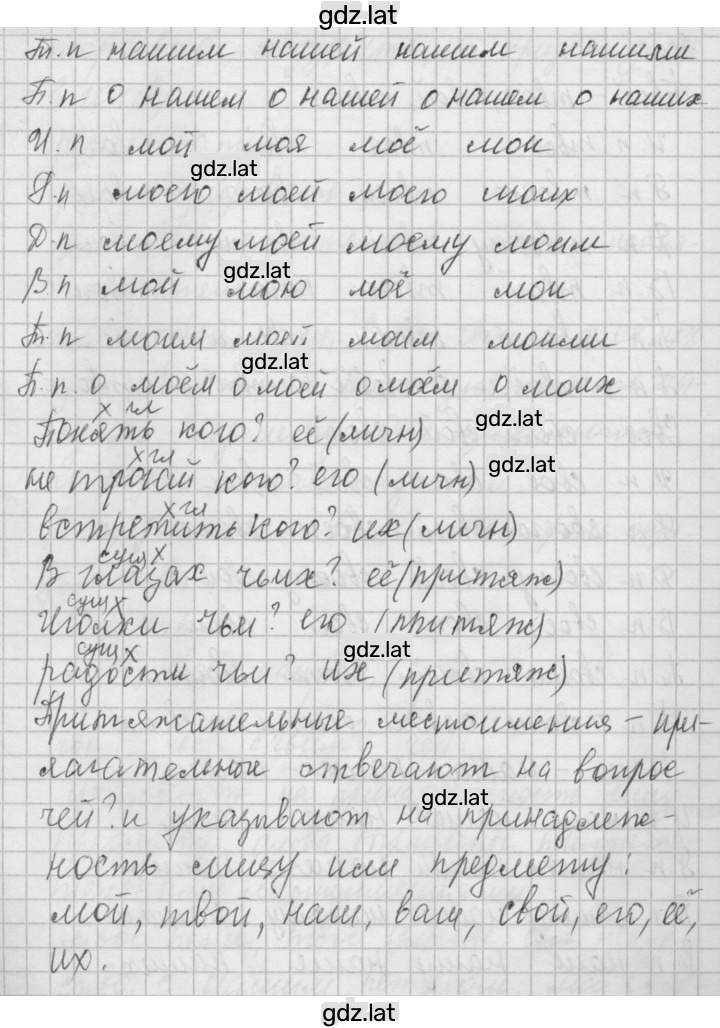 gdz.lat
Т.п нашим нашей нашим нашими
П.п о нашем о нашей о нашем о наших
И.п мой моя моё мои
gdz.lat
Р.п моего моей моего моих
Д.п моему моей моему моим
gdz.lat
В.п мой мою моё мои
Т.п моим моей моим моими
gdz.lat
П.п. о моём о моей о моём о моих
х гл
Понять кого? её (личн)
gdz.lat
х гл
не трогай кого? его (личн)
gdz.lat
х гл
встретить кого? их (личн)
сущ х
В глазах чьих? её (притяж)
сущ х
Иголки чьи? его (притяж)
сущ х
gdz.lat
радости чьи? их (притяж)
Притяжательные местоимения – при-
лагательные отвечают на вопрос
gdz.lat
чей? и указывают на принадлеж-
ность лицу или предмету:
мой, твой, наш, ваш, свой, его, её,
их.
gdz.lat